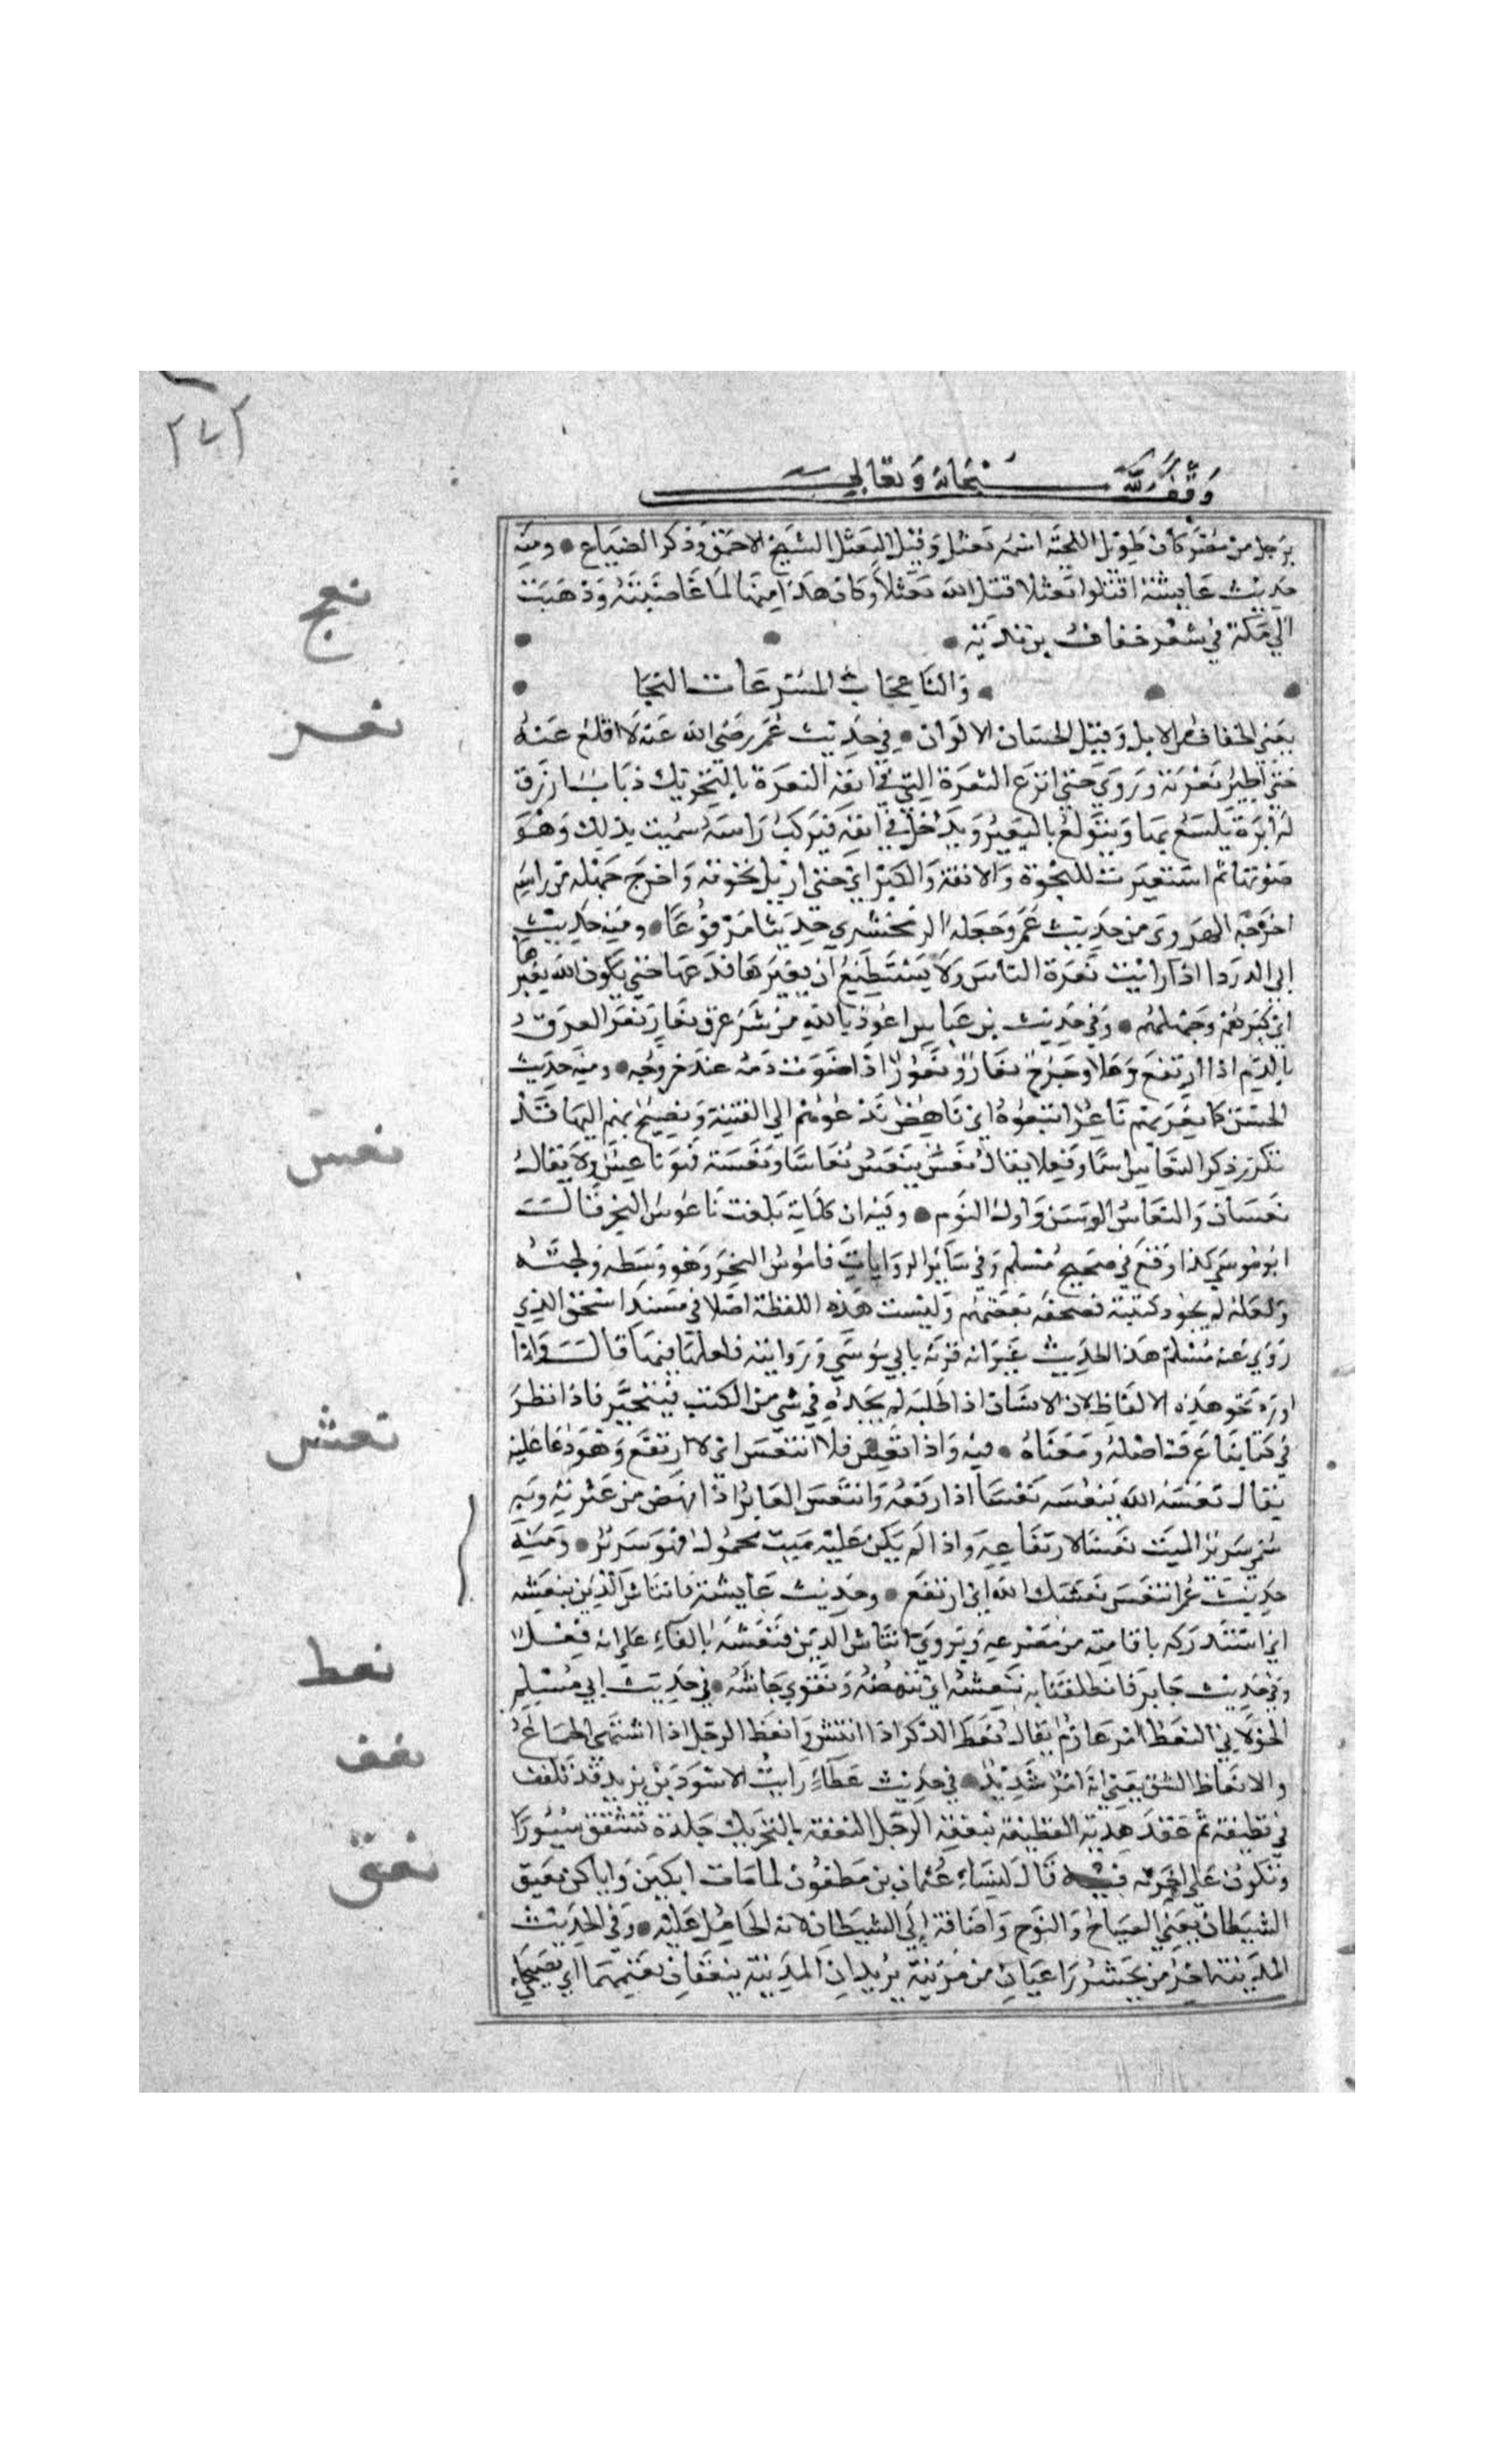 ٢٧٢
وقف لله سبحانه وتعالى
برجل من مصر كان طويل اللحية اسمه نعثل وقيل النعثل الشيخ الاحمق وذكر الضباع ومنه
حديث عايشة اقتلوا نعثلا قتل الله نعثلا وكان هذا منها لما غاضبته وذهبت
الي مكة في شعر خفاف بن ندبة
والناعجات المسرعات النجا
يعني الخفاف من الابل وقيل الحسان الالوان في حديث عمر رضي الله عنه لا اقلع عنه
حتي اطير نعرته وروي حتي انزع النعرة التي في انفه النعرة بالتحريك ذباب ازرق
له ابرة يلسع بها ويتولع بالبعير ويدخل في انفه فيركب راسه سميت بذلك وهو
صوتها ثم استعيرت للنخوة والانفة والكبر اي حتي ازيل نخوته واخرج جهله من راسه
اخرجه الهروي من حديث عمر وجعله الزمخشري حديثا مرفوعا ومنه حديث
ابي الدردا اذا رايت نعرة الناس ولا يستطيع ان يغيرها فدعها حتي يكون الله يغيرها
اي كبرهم وجهلهم وفي حديث بن عباس اعوذ بالله من شر عرق نعار نعر العرق
بالدم اذا ارتفع وعلا وجرح نعار ونعور اذا صوت دمه عند خروجه ومنه حديث
الحسن كلما نعر بهم ناعر اتبعوه اي ناهض يدعوهم الي الفتنة ويصيح بهم اليها قد
تكرر ذكر النعاس اسما وفعلا يقال نعس ينعس نعاسا ونعسة فهو ناعس ولا يقال
نعسان والنعاس الوسن واول النوم وفيه ان كلماته بلغت ناعوس البحر قال
ابو موسي كذا وقع في صحيح مسلم وفي سائر الروايات قاموس البحر وهو وسطه ولجته
ولعله لم يجود كتبته فصحفه بعضهم وليست هذه اللفظة اصلا في مسند اسحق الذي
روي عنه مسلم هذا الحديث غير انه قرنه بابي موسي وروايته فلعلها فيها قال وانما
اورد نحو هذه الالفاظ لان الانسان اذا طلبه لم يجده في شي من الكتب فيتحير فاذا نظر
في كتابنا عرف اصله ومعناه فيه واذا تعس فلا انتعش اي لا ارتفع وهو دعا عليه
يقال نعشه الله ينعشه نعشا اذا رفعه وانتعش العاثر اذا نهض من عثرته وبه
سمي سرير الميت نعشا لارتفاعه واذا لم يكن عليه ميت محمول فهو سرير ومنه
حديث عمر انتعش نعشك الله اي ارتفع وحديث عايشة فانتاش الدين بنعشه
اي استدركه باقامته من مصرعه ويروي انتاش الدين فنعشه بالفاء علي انه فعل
وفي حديث جابر فانطلقنا به ننعشه اي ننهضه ونقوي جاشه في حديث ابي مسلم
الخولاني النعظ امر عارم يقال نعظ الذكر اذا انتشر وانعظ الرجل اذا اشتهي الجماع
والانعاظ الشبق يعني انه امر شديد في حديث عطاء رايت الاسود بن يزيد قد تلفف
في قطيفة ثم عقد هدبة القطيفة بنعفة الرحل النعفة بالتحريك جلدة تشقق سيورا
وتكون علي اخرته فيه قال لنساء عثمان بن مظعون لما مات ابكين واياكن نعيق
الشيطان يعني الصياح والنوح واضافه الي الشيطان لانه الحامل عليه وفي الحديث
المدينة اخر من يحشر راعيان من مزينة يريدان المدينة ينعقان بغنمهما اي يصيحان
نعج
نعر
نعس
نعش
نعط
نعف
نعق